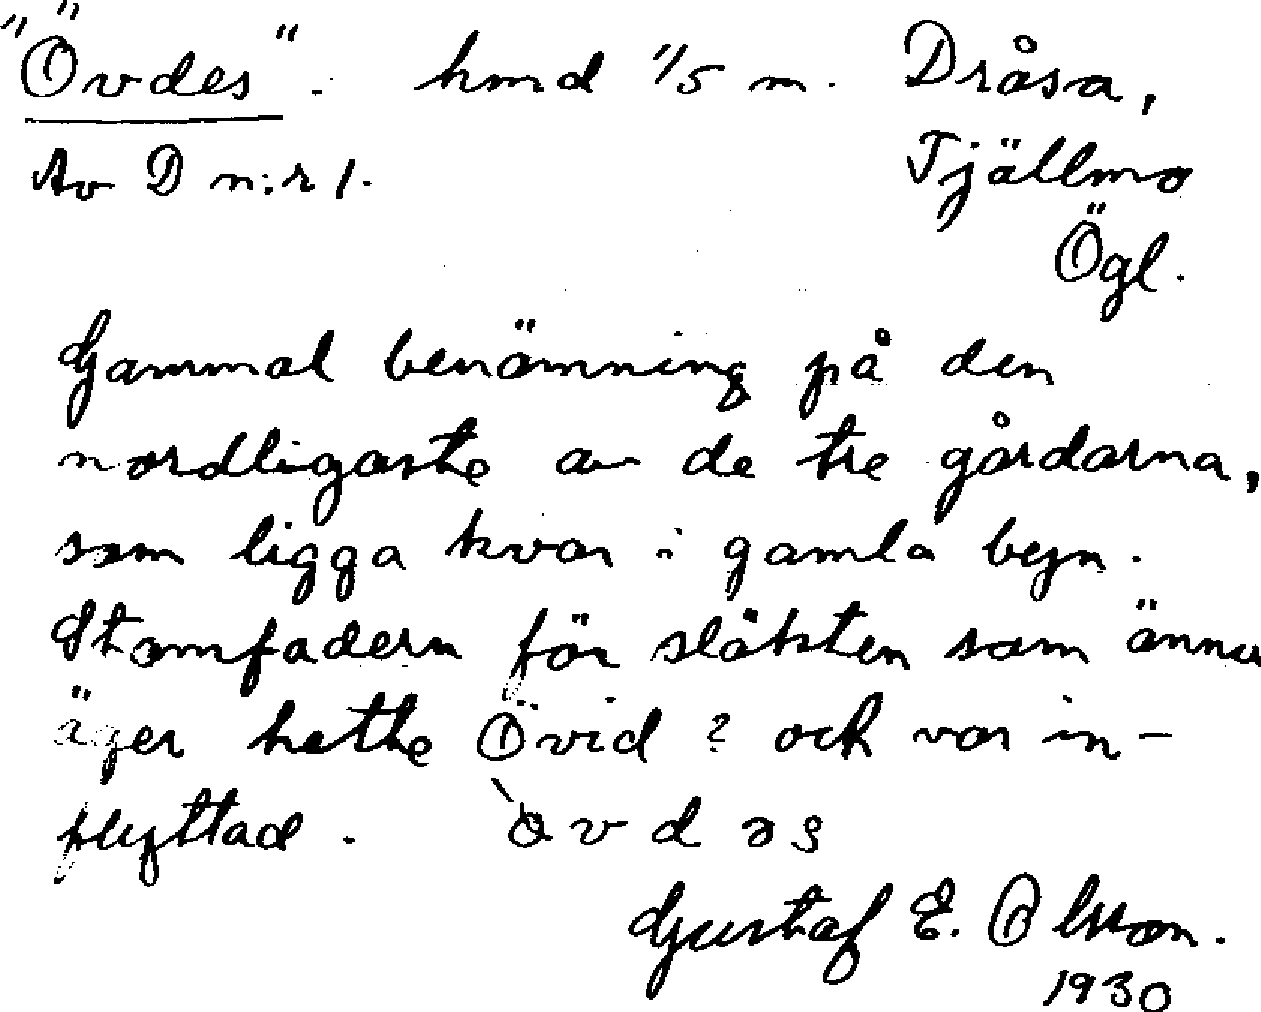 "Övdes". hmd 1/5 m. Dråsa,
Av D n:r 1. Tjällmo
Ögl.
Gammal benämning på den
nordligaste av de tre gårdarna,
som ligga kvar i gamla byn.
Stamfadern för släkten som ännu
äger hette Övid? och var in-
flyttad. òvdəs
Gustaf E. Olsson.
1930